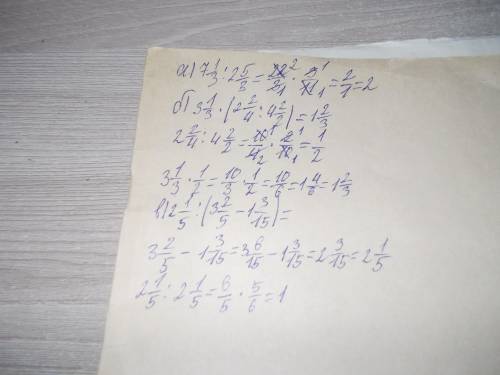 а) 7 1/3 : 2 5/3 = 22/3 · 3/11 = 2/1 = 2
б) 3 1/3 · (2 2/4 : 4 2/2) = 1 2/3
2 2/4 : 4 2/2 = 10/4 · 2/10 = 1/2
3 1/3 · 1/2 = 10/3 · 1/2 = 10/6 = 1 4/6 = 1 2/3
в) 2 1/5 : (3 2/5 - 1 3/15) =
3 2/5 - 1 3/15 = 3 6/15 - 1 3/15 = 2 3/15 = 2 1/5
2 1/5 : 2 1/5 = 6/5 · 5/6 = 1